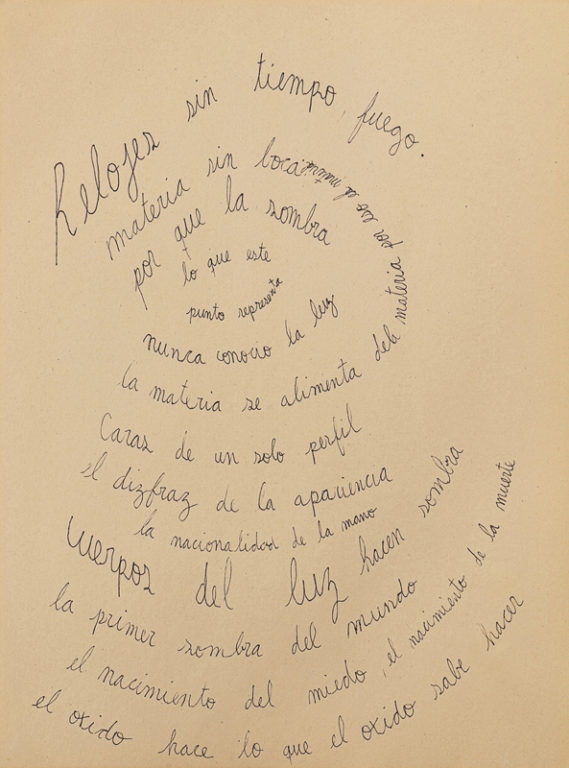 Relojes sin tiempo, fuego.
materia sin boca
por que la sombra
lo que este
punto representa
nunca conocio la luz
la materia se alimenta de materia por eso
Caras de un solo perfil
el dizfraz de la apariencia
la nacionalidad de la mano
Cuerpos del luz hacen sombra
la primer sombra del mundo
el nacimiento del miedo, el nacimiento de la muerte
el oxido hace lo que el oxido sabe hacer